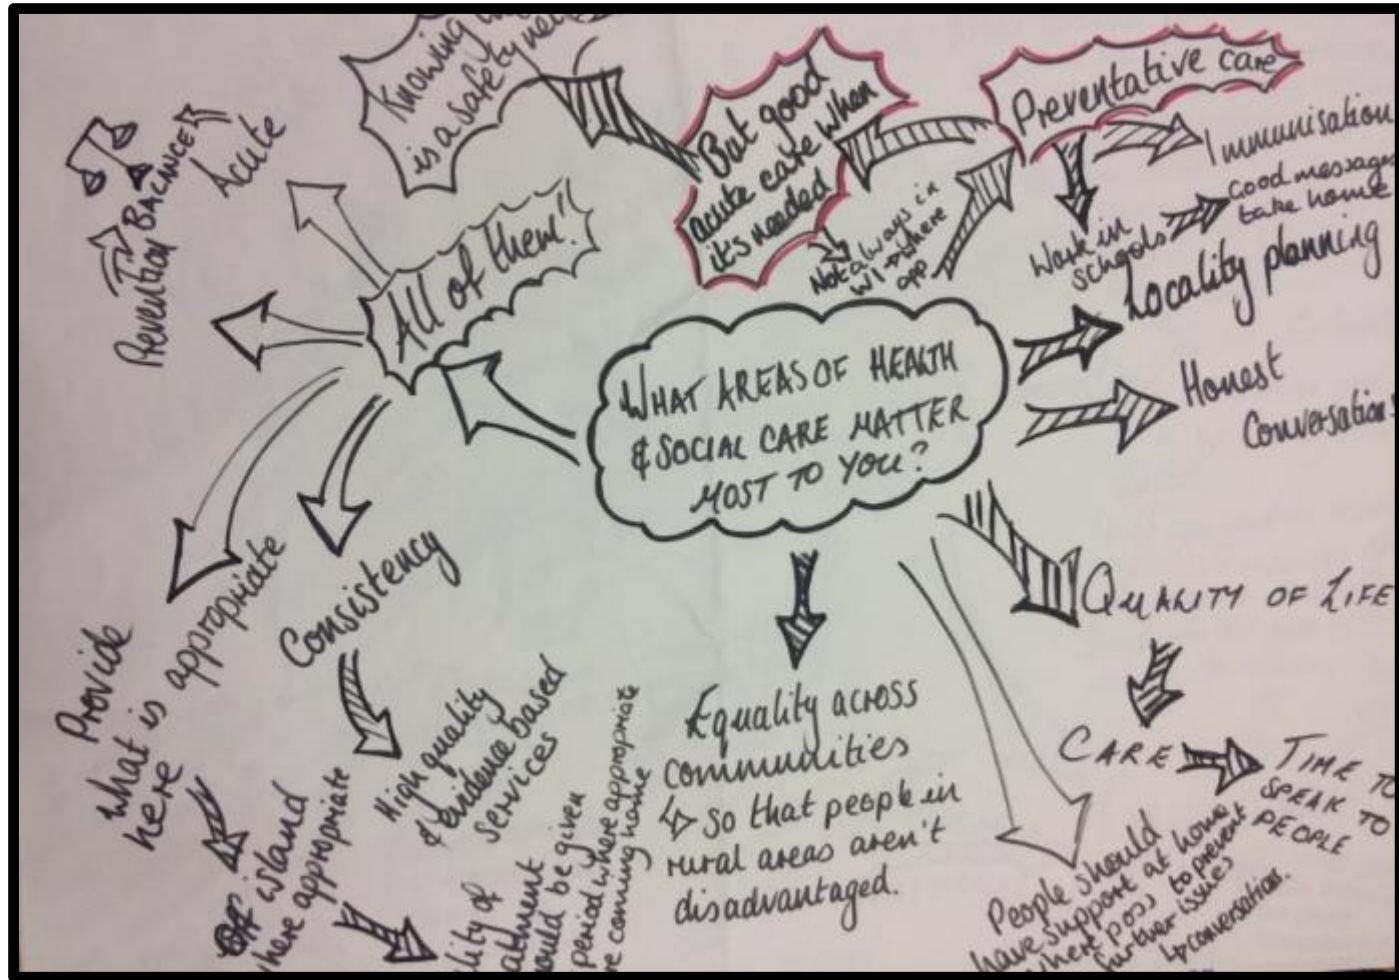 WHAT AREAS OF HEALTH
& SOCIAL CARE MATTER
MOST TO YOU?
Knowing
is a safety
But good
acute care when
it's needed
Not always in
WI → where
app
Preventative care
Immunisation
Work in
schools
Good message
take home
Locality planning
Honest
Conversation
QUALITY OF LIFE
CARE
TIME TO
SPEAK TO
PEOPLE
People should
have support at home
where poss to prevent
further issues
↳ conversations.
Equality across
communities
↳ So that people in
rural areas aren't
disadvantaged.
All of them!
Acute
BALANCE
Prevention
Consistency
High quality
& evidence based
services
Provide
what is appropriate
here
Off island
where appropriate
be given
period where appropriate
coming home